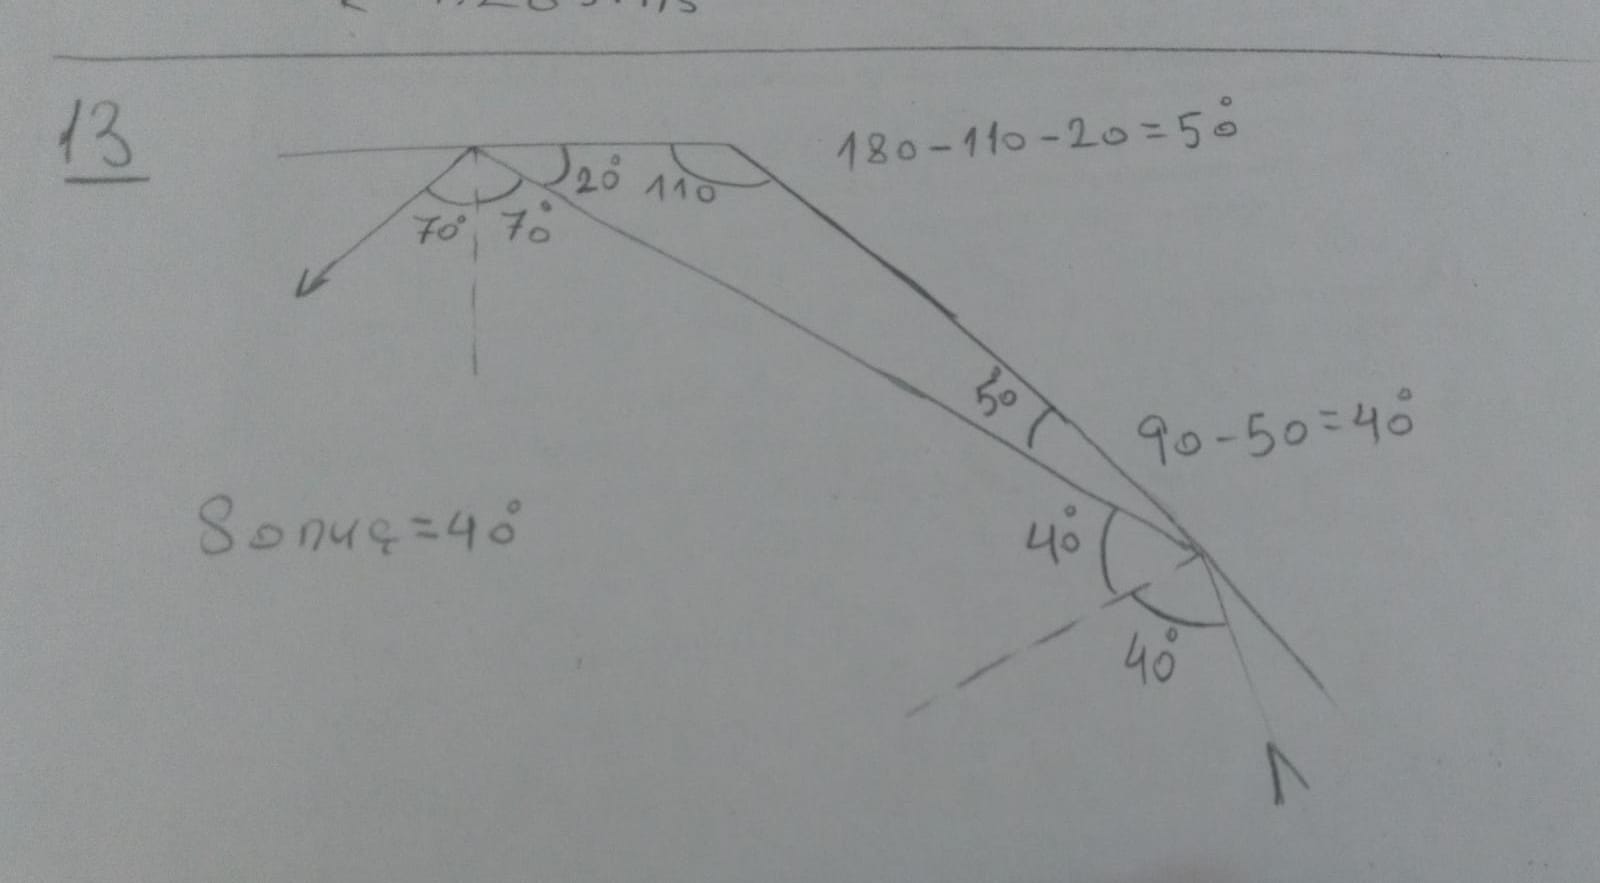 13
180-110-20=50°
20° 110
70° 70°
50
90-50=40°
Sonuç=40°
40°
40°